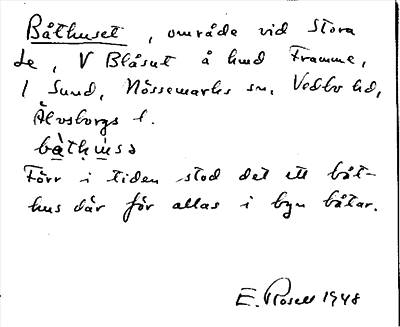 Båthuset, område vid Stora
Le, V Blåsut å hmd Framme,
1 Sund, Nössemarks sn, Vedbo hd,
Älvsborgs l.
Förr i tiden stod det ett båt-
hus där för allas i byn båtar.
E. Rosell 1948